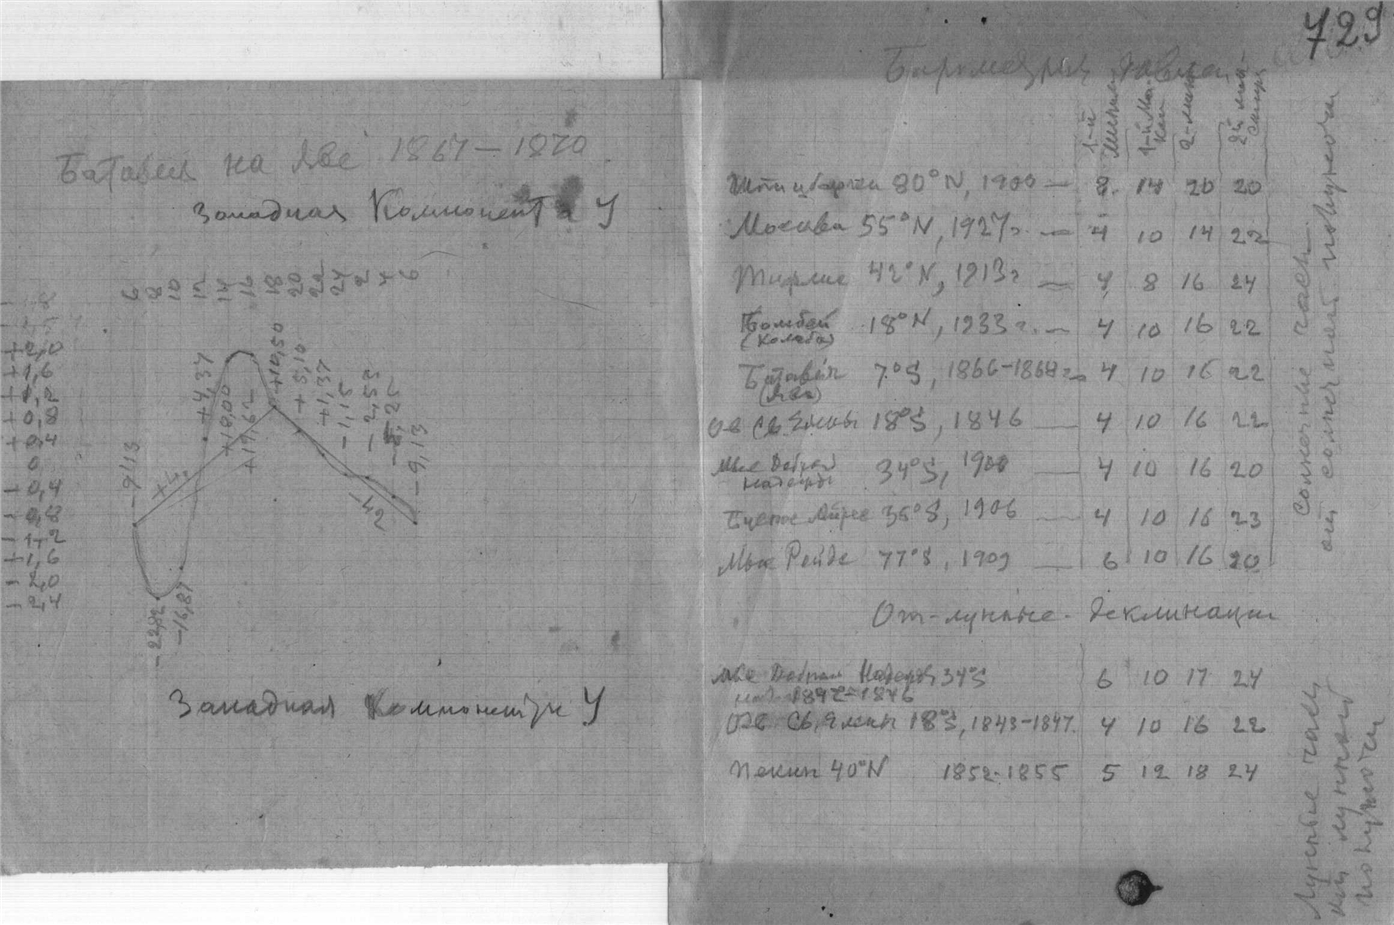 729
Батавия на Яве 1867—1870
Западная Компонента У
6 8 10 12 14 16 18 20 22 24 2 4 6
+2,0
+1,6
+0,8
+0,4
0
- 0,4
- 0,8
- 1,2
- 1,6
- 2,0
- 2,4
-9,13
-22,82
-16,87
+4,37
+18,00
+17,62
+10,50
+5,10
+1,37
-1,15
-2,53
-9,13
-42
Западная Компонента У
Барометрич. давлен.
1-й миним
1-й Мак
2-миним
2й мак
Шпицберген 80°N, 1900 — 8 14 20 20
Москва 55°N, 1927г. — 4 10 14 22
Тифлис 42°N, 1913г — 4 8 16 24
Бомбей 18°N, 1933г. — 4 10 16 22
(Колаба)
Батавия 7°S, 1866-1868г — 4 10 16 22
(Ява)
Ов Св. Елены 18°S, 1846 — 4 10 16 22
Мыс Доброй 34°S, 1900 — 4 10 16 20
Надежды
Буэнос Айрес 35°S, 1906 — 4 10 16 23
Мыс Ройдс 77°S, 1909 — 6 10 16 20
Солнечные часы
от солнечной полуночи
От-лунные деклинации
Мыс Доброй Надежды 34°S 6 10 17 24
1842-1846
Ов Св. Елены 18°S, 1843-1847. 4 10 16 22
Пекин 40°N 1852-1855 5 12 18 24
Лунные часы
от лунной
полуночи